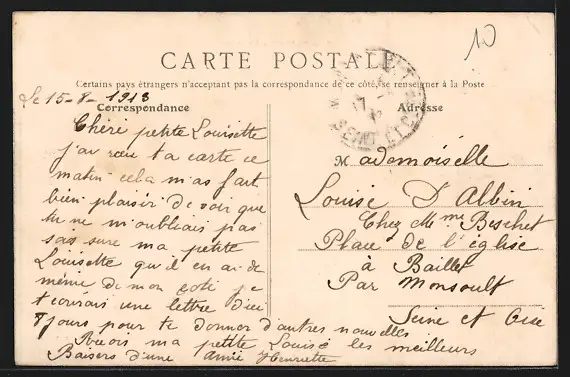 10
CARTE POSTALE
Certains pays étrangers n'acceptant pas la correspondance de ce côté, se renseigner à la Poste
Le 15-8-1913
Correspondance
Chère petite Louisette
j'ai reçu ta carte ce
matin cela m'as fait
bien plaisir de voir que
tu ne m'oubliais pas
sois sure ma petite
Louisette qu'il en ai de
même de mon coté je
t'ecrirais une lettre d'ici
8 jours pour te donner d'autres nouvelles
Reçois ma petite Louise les meilleurs
Baisers d'une amie Henriette
SEINE ET OISE
Adresse
Mademoiselle
Louise D'Albin
Chez Mme Beschet
Place de l'église
à Baillet
Par Monsoult
Seine et Oise